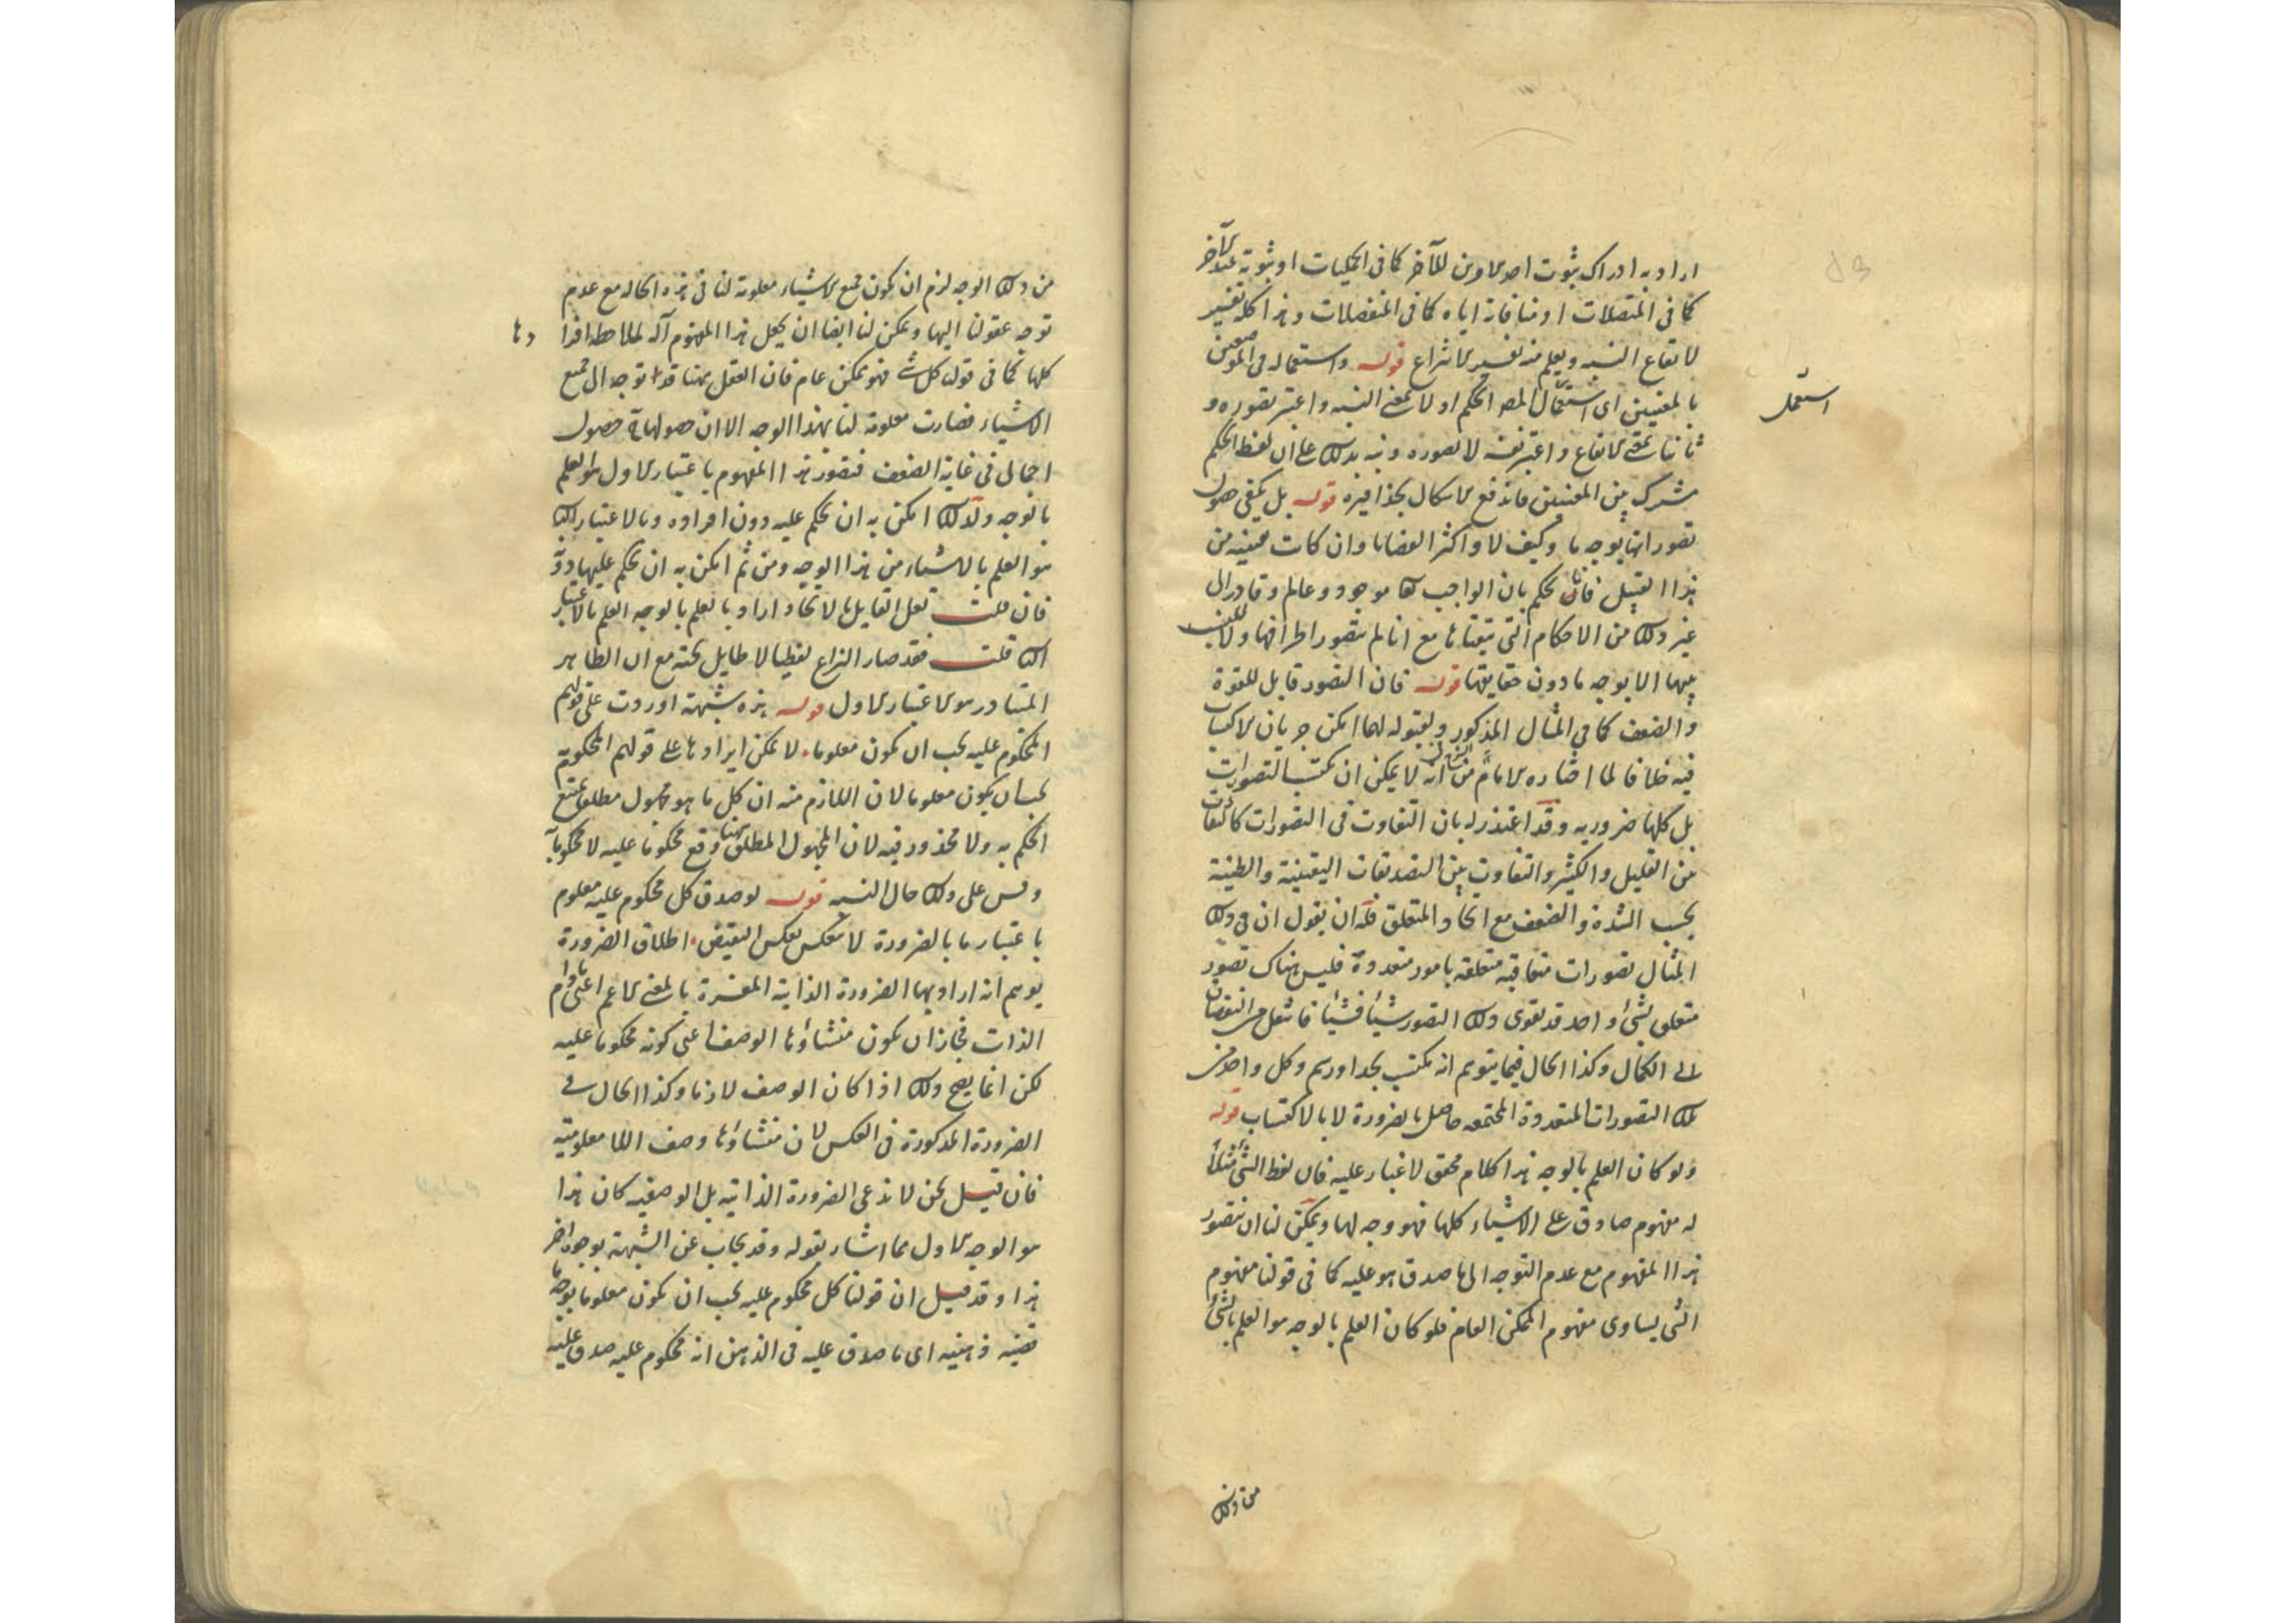 اراد به ادراك ثبوت احد الامرين للآخر كما فى الحمليات او ثبوته عند الآخر
كما فى المتصلات او منافاته اياه كما فى المنفصلات وهذا كله تفسير
لايقاع النسبه ويعلم منه تفسير الانتزاع قوله واستعماله فى الموضعين
بالمعنيين اى استعمال المصـ الحكم اولا بمعنى النسبه واعتبر تصوره و
استعمل
ثانيا بمعنى الايقاع واعتبر نفسه لا تصوره ونبه بذلك على ان لفظ الحكم
مشترك بين المعنيين فاندفع الاشكال بحذافيره قوله بل يكفى حصول
تصوراتها بوجه ما وكيف لا واكثر القضايا وان كانت يقينيه من
هذا القبيل فانا نحكم بان الواجب تعا موجود وعالم وقادر الى
غير ذلك من الاحكام التى تيقناها مع انا لم نتصور اطرافها ولا النسب
بينها الا بوجه ما دون حقايقها قوله فان التصور قابل للقوة
والضعف كما فى المثال المذكور ولقبوله لهما امكن جريان الاكتساب
فيه خلافا لما اختاره الامام من انه لا يمكن ان يكتسب التصورات
بل كلها ضروريه وقد اعتذر له بان التفاوت فى التصورات كالتفاوت
بين القليل والكثير والتفاوت بين التصديقات اليقينية والظنية
بحسب الشدة والضعف مع اتحاد المتعلق فله ان يقول ان فى ذلك
المثال تصورات متعاقبه متعلقه بامور متعددة فليس هناك تصور
متعلق بشئ واحد قد تقوى ذلك التصور شيئا فشيئا فانتقل من النقصان
الى الكمال وكذا الحال فيما يتوهم انه مكتسب بحد او رسم وكل واحد من
تلك التصورات المتعددة المجتمعه حاصل بالضرورة لا بالاكتساب قوله
ولو كان العلم بالوجه هذا كلام محقق لا غبار عليه فان لفظ الشئ مثلا
له مفهوم صادق على الاشياء كلها فهو وجه لها ويمكن لنا ان نتصور
هذا المفهوم مع عدم التوجه الى ما صدق هو عليه كما فى قولنا مفهوم
الشئ يساوى مفهوم الممكن العام فلو كان العلم بالوجه هو العلم بالشئ
من ذلك
من ذلك الوجه لزم ان يكون جميع الاشياء معلومة لنا فى هذه الحاله مع عدم
توجه عقولنا اليها ويمكن لنا ايضا ان نجعل هذا المفهوم آلة لملاحظة افرا دها
كلها كما فى قولنا كل شئ فهو ممكن عام فان العقل ههنا قد توجه الى جميع
الاشياء فصارت معلومة لنا بهذا الوجه الا ان حصولها حصول
اجمالى فى غاية الضعف فتصور هذا المفهوم باعتبار الاول هو العلم
بالوجه ولذلك امكن به ان يحكم عليه دون افراده وبالاعتبار الثا
هو العلم بالاشياء من هذا الوجه ومن ثم امكن به ان يحكم عليها دونه
فان قلت لعل القايل بالاتحاد اراد بالعلم بالوجه العلم بالاعتبار
الثا قلت فقد صار النزاع لفظيا لا طايل تحته مع ان الظاهر
المتبادر هو الاعتبار الاول قوله هذه شبهة اوردت على قولهم
المحكوم عليه يجب ان يكون معلوما لا يمكن ايرادها على قولهم المحكوم به
يجب ان يكون معلوما لان اللازم منه ان كل ما هو مجهول مطلق يمتنع
الحكم به ولا محذور فيه لان المجهول المطلق ههنا وقع محكوما عليه لا محكوما به
وقس على ذلك حال النسبه قوله لو صدق كل محكوم عليه معلوم
باعتبار ما بالضرورة لانعكس بعكس النقيض اطلاق الضرورة
يوهم انه اراد بها الضرورة الذاتية المفسرة بالمعنى الاعم اعنى ما دام
الذات فجاز ان يكون منشاؤها الوصف اعنى كونه محكوما عليه
لكن انما يصح ذلك اذا كان الوصف لازما وكذا الحال فى
الضرورة المذكورة فى العكس لان منشاؤها وصف اللا معلومية
فان قيل نحن لا ندعى الضرورة الذاتيه بل الوصفيه كان هذا
هو الوجه الاول مما اشار بقوله وقد يجاب عن الشبهة بوجوه اخر
هذا وقد قيل ان قولنا كل محكوم عليه يجب ان يكون معلوما بوجه ما
قضيه ذهنيه اى ما صدق عليه فى الذهن انه محكوم عليه صدق عليه